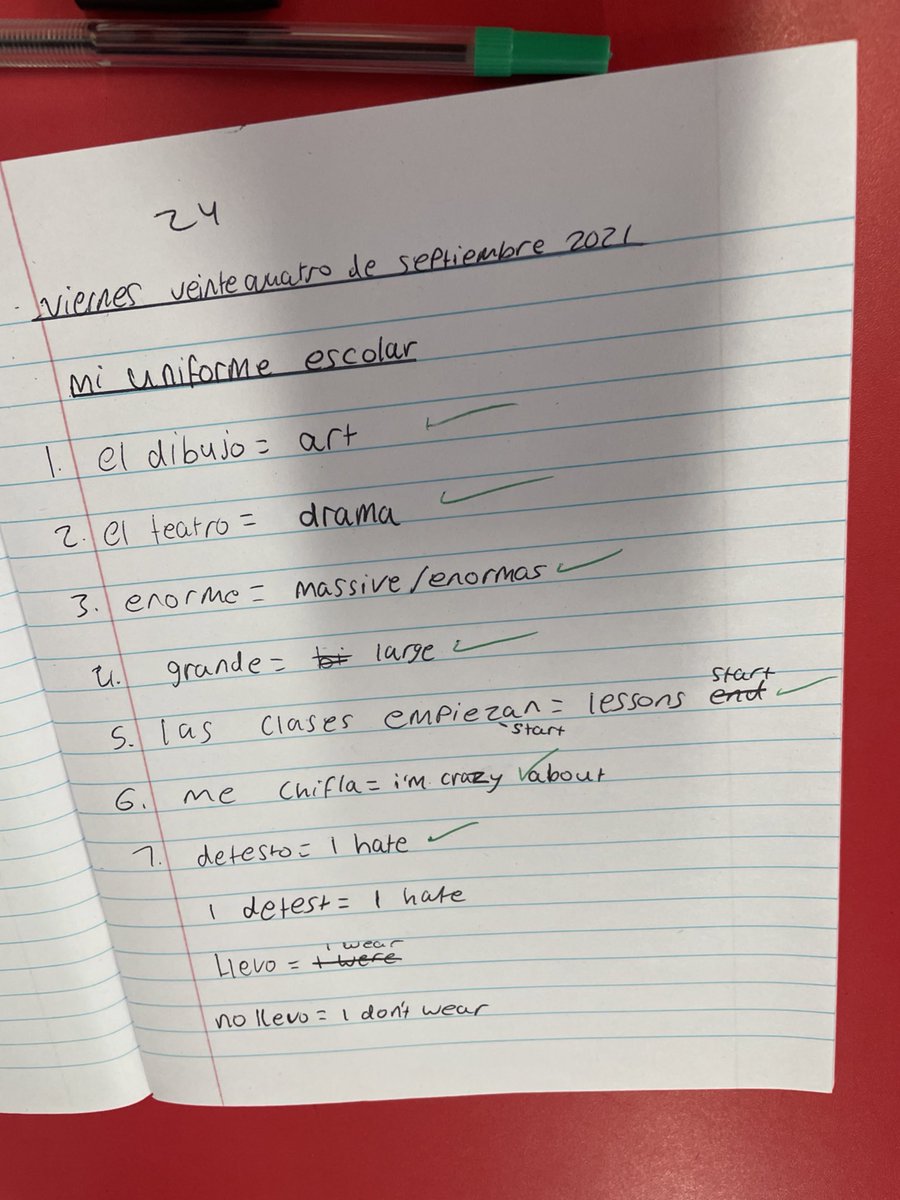 24
viernes veintequatro de septiembre 2021
mi uniforme escolar
1. el dibujo = art
2. el teatro = drama
3. enorme = massive/enormas
4. grande = bi large
start
5. las clases empiezan = lessons end
start
6. me chifla = i'm crazy about
7. detesto = I hate
I detest = I hate
I wear
Llevo = I were
no llevo = I don't wear